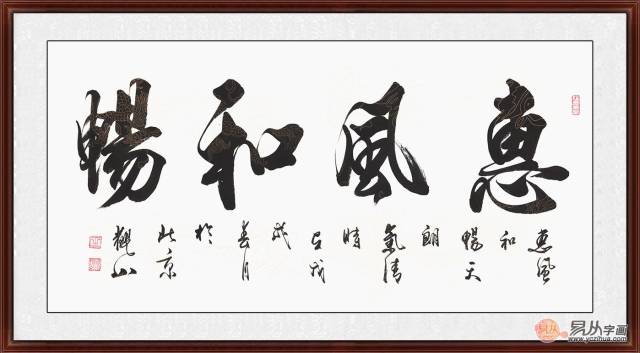 惠風和暢
惠風
和
暢天
朗
氣清
時
春月
於
北京
易从字画
www.yczihua.com